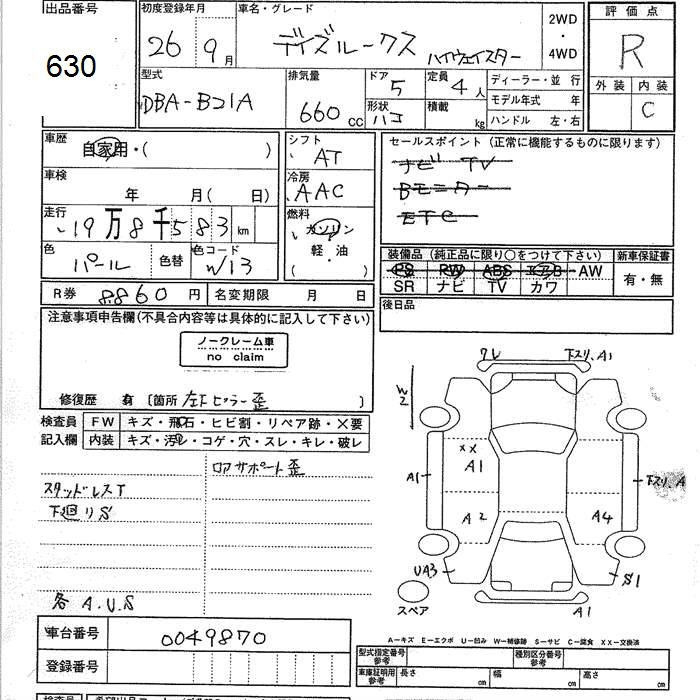 出品番号
630
初度登録年月
26年 9月
車名・グレード
デイズルークス ハイウェイスター
2WD
・
4WD
評価点
R
外装 内装
C
型式
DBA-B21A
排気量
660 cc
ドア
5
形状
ハコ
定員
4人
積載
kg
ディーラー・並行
モデル年式 年
ハンドル 左・右
車歴
自家用・( )
車検
年 月( 日)
走行
19万8千583 km
色
パール
色替
色コード
W13
シフト
AT
冷房
AAC
燃料
ガソリン
軽・油
( )
セールスポイント (正常に機能するものに限ります)
ナビ TV
Bモニター
ETC
装備品 (純正品に限り○をつけて下さい)
PS PW ABS エアB AW
SR ナビ TV カワ
新車保証書
有・無
R券 8860円 名変期限 月 日
後日品
注意事項申告欄(不具合内容等は具体的に記入して下さい)
ノークレーム車
no claim
修復歴 有 〔箇所 左下ピラー歪 〕
検査員
記入欄
FW キズ・飛石・ヒビ割・リペア跡・×要
内装 キズ・汚れ・コゲ・穴・スレ・キレ・破レ
ロアサポート歪
スタッドレスT
下廻りS
各 A.U.S
ワレ
下スリ、A1
W2
××
A1
A1
下スリ、A
A2
A4
UA3
S1
スペア
A1
A―キズ E―エクボ U―凹み W―補修跡 S―サビ C―腐食 XX―交換済
車台番号 0049870
登録番号
型式指定番号
参考
種別区分番号
参考
車庫証明用
参考
長さ cm 幅 cm 高さ cm